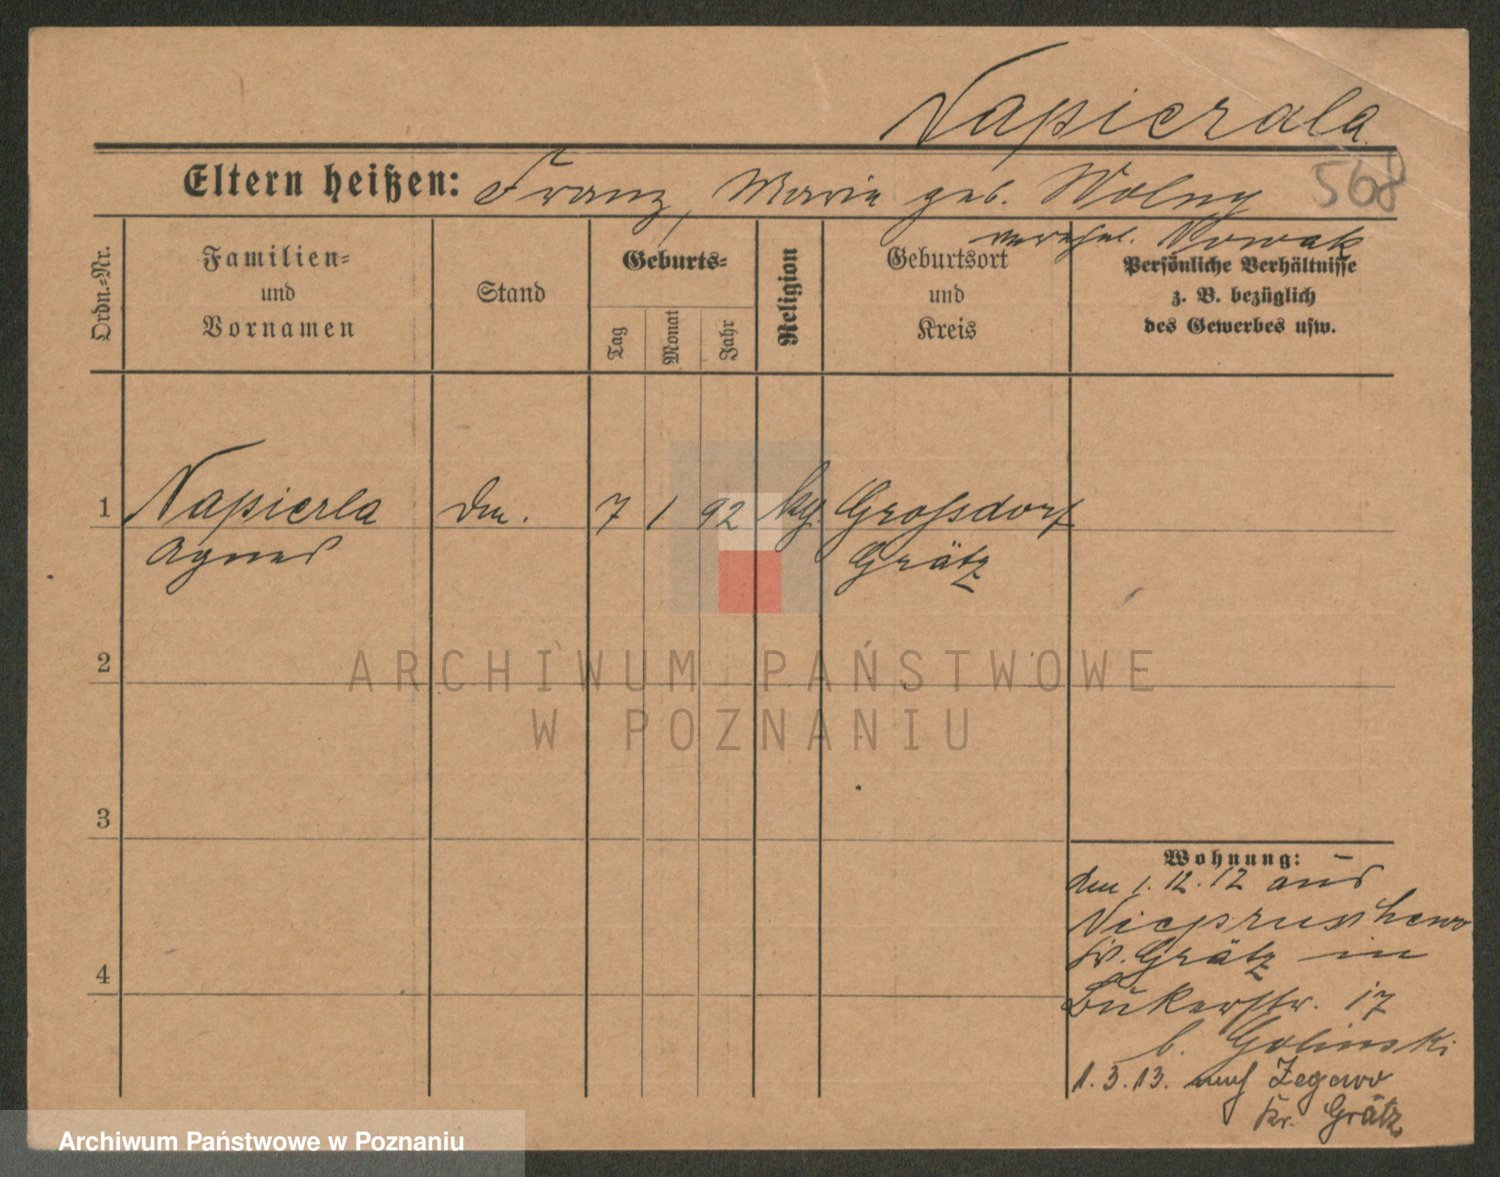 Napierala
568
Eltern heißen: Franz, Marie geb. Wolny
verehel. Nowak
Ordn.-Nr.
Familien-
und
Vornamen
Stand
Geburts-
Tag
Monat
Jahr
Religion
Geburtsort
und
Kreis
Persönliche Verhältnisse
z. B. bezüglich
des Gewerbes usw.
1 Napierla 7 1 92 Grossdorf
Agnes Grätz
ARCHIWUM PAŃSTWOWE
W POZNANIU
2
3
4
Wohnung:
den 1. 12. 12 aus
Kr. Grätz in
Bukerstr. 17
b. Golinski
1. 3. 13. nach Zegowo
Kr. Grätz
Archiwum Państwowe w Poznaniu